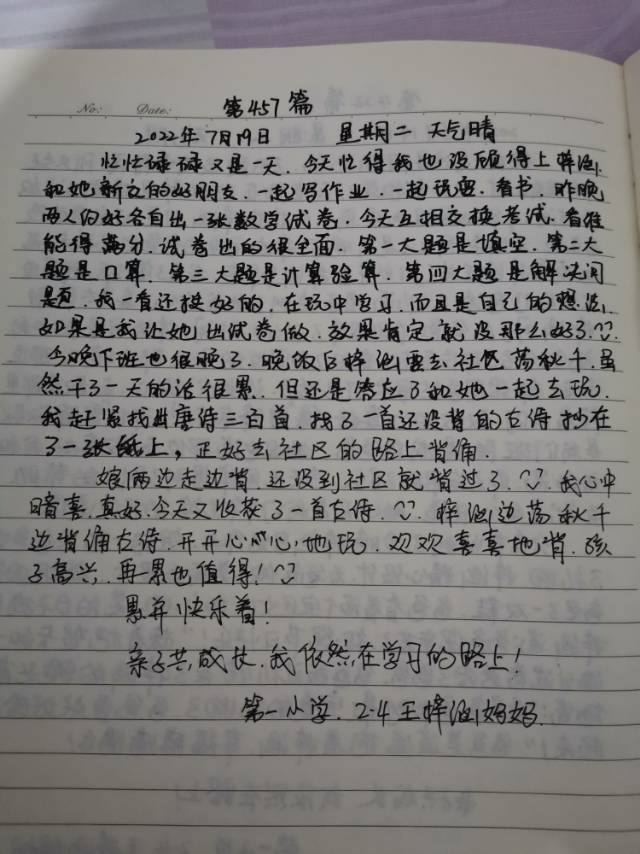 第457篇
No: Date:
2022年7月19日 星期二 天气晴
忙忙碌碌又是一天.今天忙得我也没顾得上梓涵,
和她新交的好朋友.一起写作业.一起玩耍.看书.昨晚
两人约好各自出一张数学试卷.今天互相交换考试.看谁
能得满分.试卷出的很全面.第一大题是填空.第二大
题是口算.第三大题是计算验算.第四大题是解决问
题.我一看还挺好的.在玩中学习.而且是自己的想法.
如果是我让她出试卷做.效果肯定就没那么好了.
今晚下班也很晚了.晚饭后梓涵要去社区荡秋千.虽
然干了一天的活很累.但还是答应了和她一起去玩.
我赶紧找出唐诗三百首.找了一首还没背的古诗抄在
了一张纸上,正好去社区的路上背诵.
娘俩边走边背.还没到社区就背过了.我心中
暗喜.真好.今天又收获了一首古诗.梓涵边荡秋千
边背诵古诗.开开心心地玩.欢欢喜喜地背.孩
子高兴.再累也值得!
累并快乐着!
亲子共成长.我依然在学习的路上!
第一小学.2.4王梓涵妈妈.